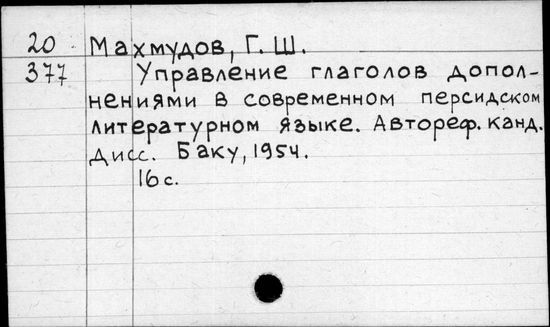 20 Махмудов, Г. Ш.
377 Управление глаголов допол-
нениями в современном персидском
литературном языке. Автореф. канд.
дисс. Баку, 1954.
16 с.